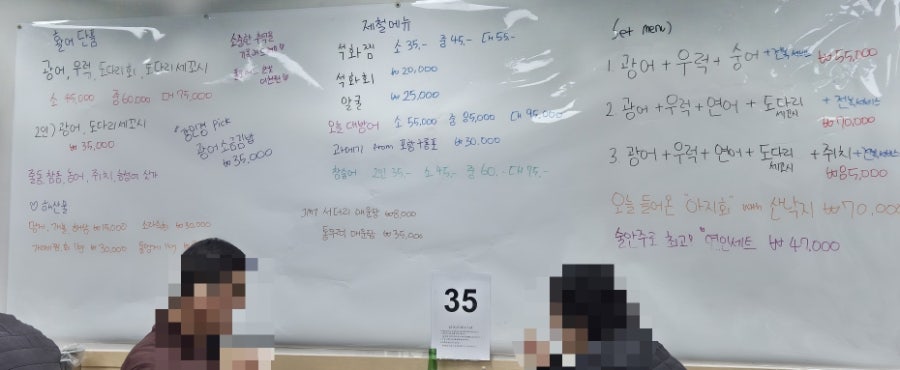 활어 단품
광어, 우럭, 도다리회, 도다리세꼬시
소 45,000 중 60,000 대 75,000
2인) 광어, 도다리세꼬시
₩35,000
Pick
광어소금김밥
₩35,000
줄돔, 참돔, 농어, 쥐치,
♡ 해산물
멍게, 개불, 해삼 ₩15,000
₩30,000
1kg ₩30,000
제철메뉴
석화찜 소 35,- 중 45,- 대 55,-
석화회 ₩20,000
알굴 ₩25,000
오늘 대방어 소 55,000 중 85,000 대 95,000
과메기 from 포항구룡포 ₩30,000
참숭어 2인 35,- 소 45,- 중 60,- 대 75,-
JMT 서더리 매운탕 ₩8,000
통우럭 매운탕 ₩35,000
Set menu)
1. 광어+우럭+숭어 +전복서비스 ₩55,000
2. 광어+우럭+연어+도다리세꼬시 +전복서비스 ₩70,000
3. 광어+우럭+연어+도다리세꼬시 +쥐치+전복서비스 ₩85,000
오늘 들어온 "아지회" with 산낙지 ₩70,000
술안주로 최고! "연인세트 ₩47,000
35